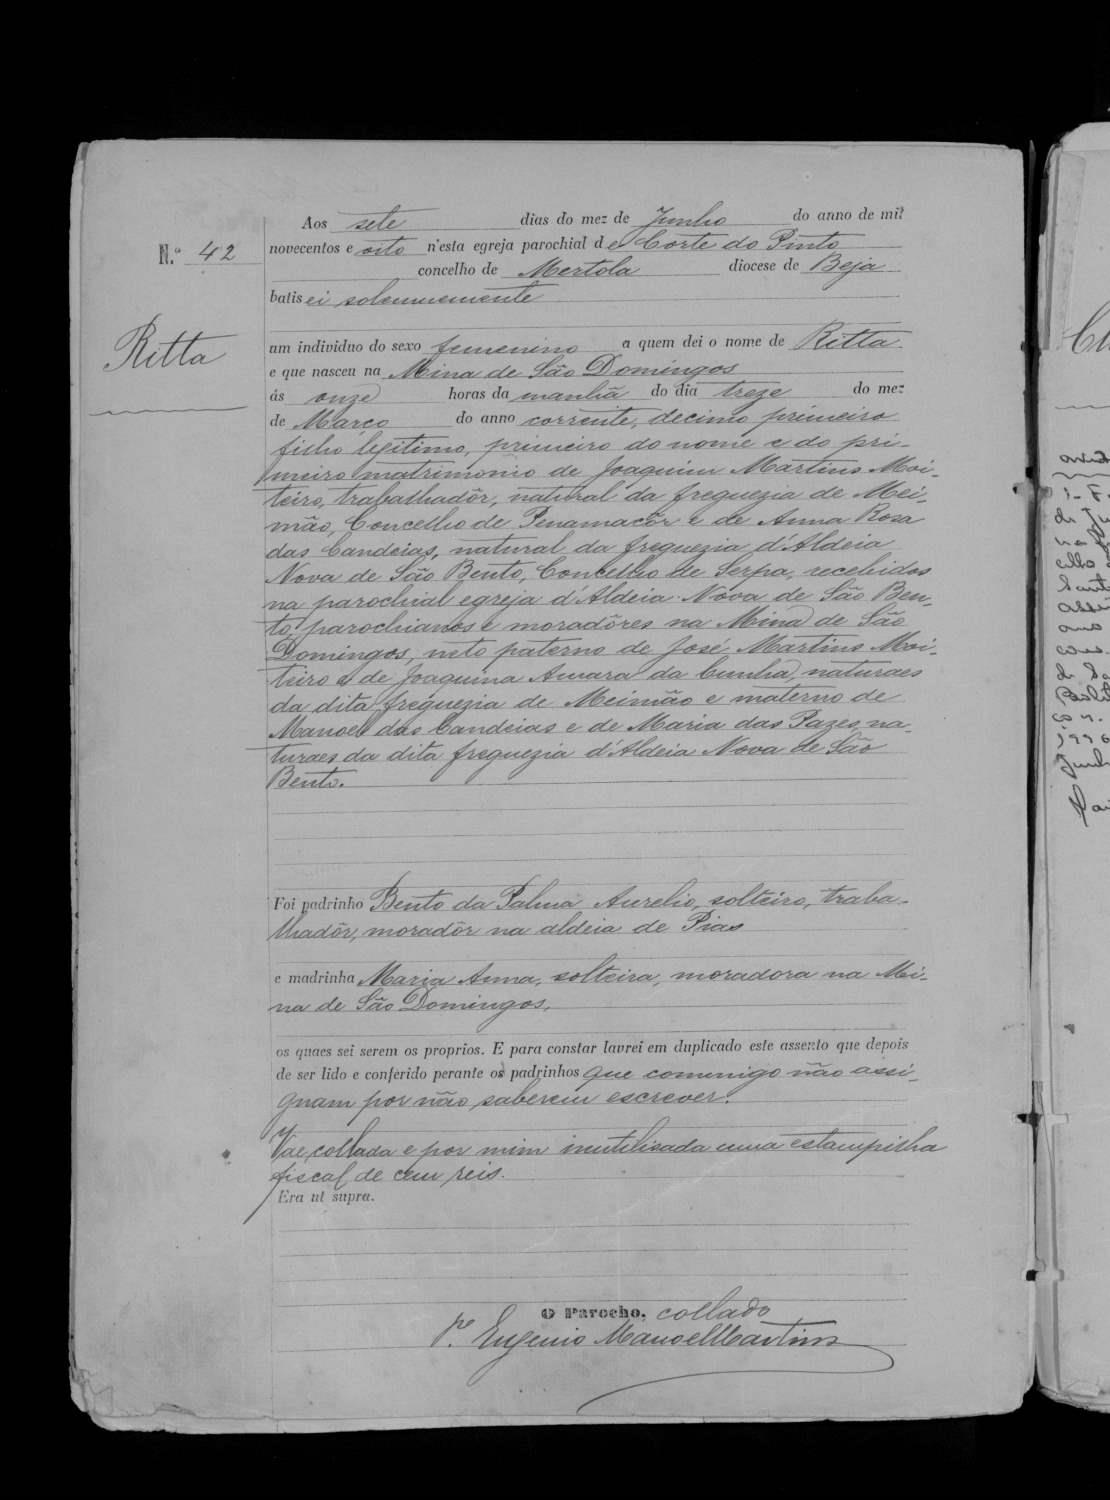 Aos sete dias do mez de Junho do anno de mil
N.º 42
novecentos e oito n'esta egreja parochial de Corte do Pinto
concelho de Mertola diocese de Beja
batisei solemnemente
Ritta
um individuo do sexo femenino a quem dei o nome de Ritta
e que nasceu na Mina de São Domingos
ás onze horas da manhã do dia treze do mez
de Março do anno corrente, decimo primeiro
filho legitimo, primeiro do nome e do pri-
meiro matrimonio de Joaquim Martins Moi-
teiro, trabalhadôr, natural da freguezia de Mei-
mão, Concelho de Penamacôr e de Anna Rosa
das Candeias, natural da freguezia d'Aldeia
Nova de São Bento, Concelho de Serpa, recebidos
na parochial egreja d'Aldeia Nova de São Ben-
to, parochianos e moradôres na Mina de São
Domingos, neto paterno de José Martins Moi-
teiro e de Joaquina Amara da Cunha, naturaes
da dita freguezia de Meimão e materno de
Manoel das Candeias e de Maria das Pazes, na-
turaes da dita freguezia d'Aldeia Nova de São
Bento.
Foi padrinho Bento da Palma Aurelio, solteiro, traba-
lhadôr, moradôr na aldeia de Pias
e madrinha Maria Anna, solteira, moradora na Mi-
na de São Domingos,
os quaes sei serem os proprios. E para constar lavrei em duplicado este assento que depois
de ser lido e conferido perante os padrinhos que commigo não assi-
gnam por não saberem escrever.
Vae collada e por mim inutilisada uma estampilha
fiscal de cem reis.
Era ut supra.
O Parocho, collado
P.e Eugenio Manoel Martins